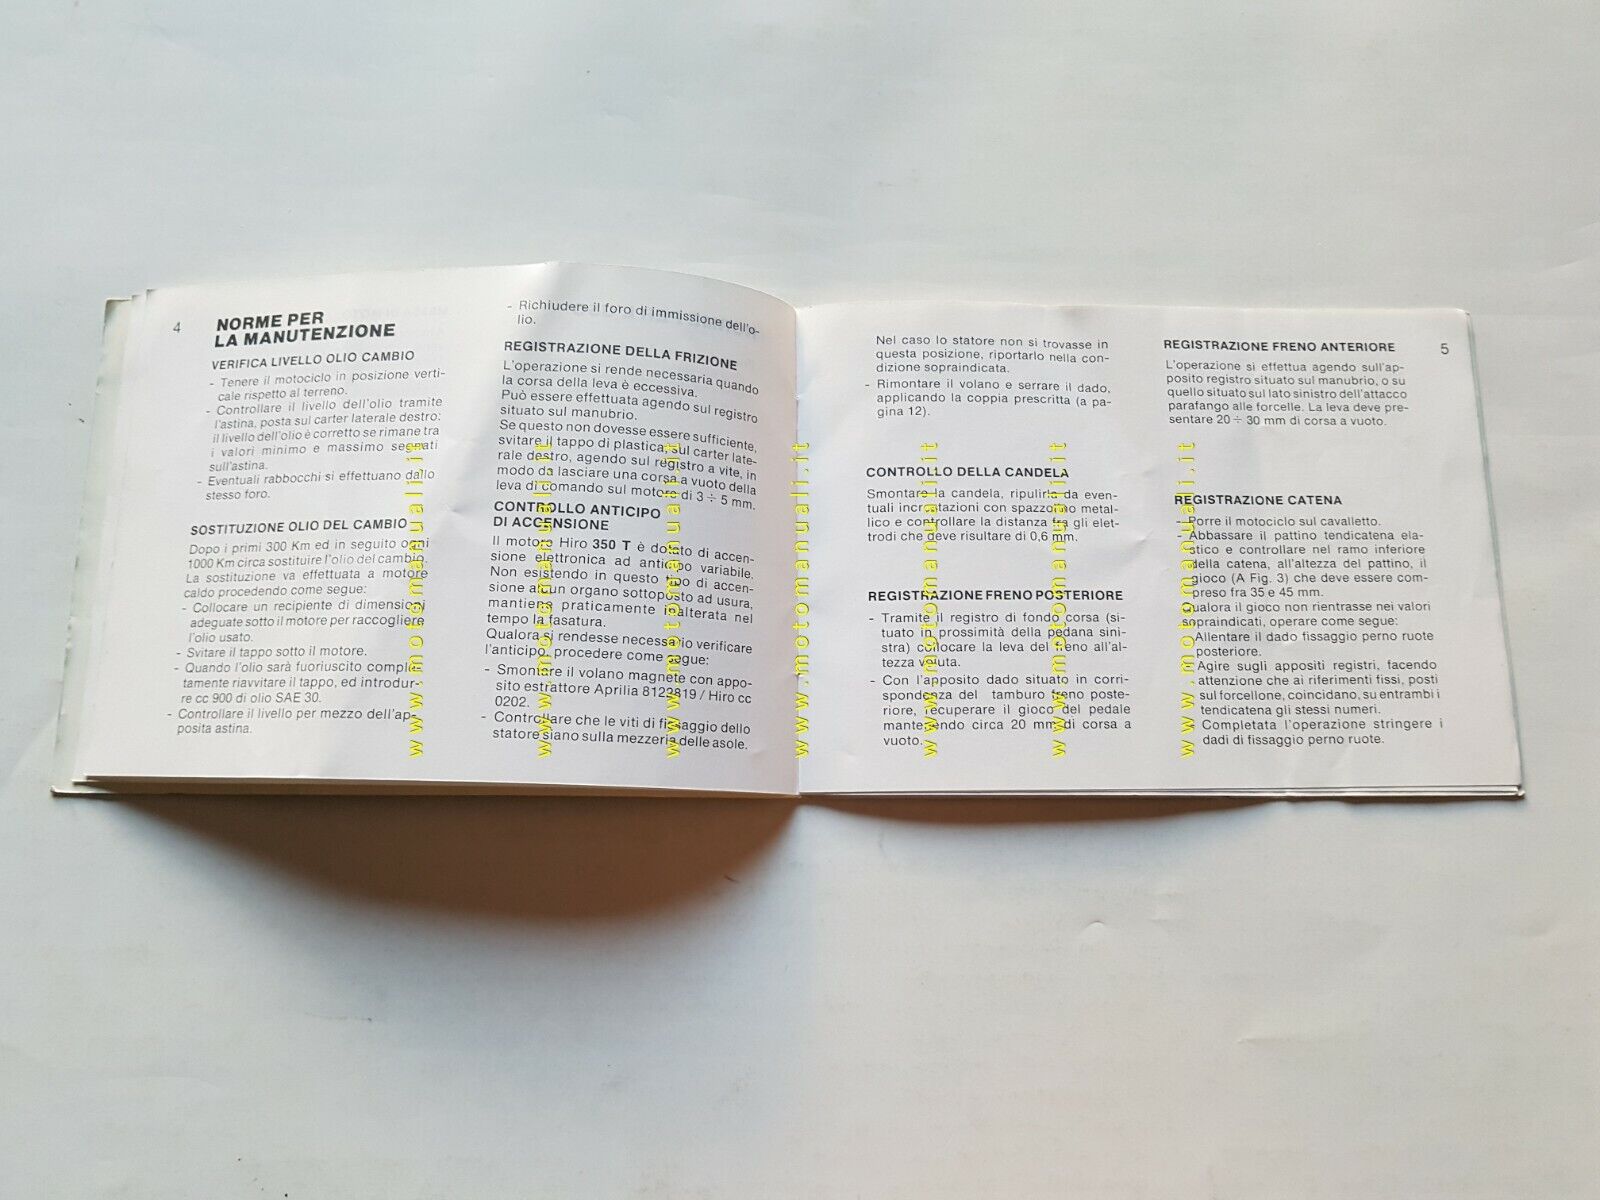 4
NORME PER
LA MANUTENZIONE
VERIFICA LIVELLO OLIO CAMBIO
- Tenere il motociclo in posizione verti-
cale rispetto al terreno.
- Controllare il livello dell'olio tramite
l'astina, posta sul carter laterale destro:
il livello dell'olio è corretto se rimane tra
i valori minimo e massimo segnati
sull'astina.
- Eventuali rabbocchi si effettuano dallo
stesso foro.
SOSTITUZIONE OLIO DEL CAMBIO
Dopo i primi 300 Km ed in seguito ogni
1000 Km circa sostituire l'olio del cambio.
La sostituzione va effettuata a motore
caldo procedendo come segue:
- Collocare un recipiente di dimensioni
adeguate sotto il motore per raccogliere
l'olio usato.
- Svitare il tappo sotto il motore.
- Quando l'olio sarà fuoriuscito comple-
tamente riavvitare il tappo, ed introdur-
re cc 900 di olio SAE 30.
- Controllare il livello per mezzo dell'ap-
posita astina.
- Richiudere il foro di immissione dell'o-
lio.
REGISTRAZIONE DELLA FRIZIONE
L'operazione si rende necessaria quando
la corsa della leva è eccessiva.
Può essere effettuata agendo sul registro
situato sul manubrio.
Se questo non dovesse essere sufficiente,
svitare il tappo di plastica sul carter late-
rale destro, agendo sul registro a vite, in
modo da lasciare una corsa a vuoto della
leva di comando sul motore di 3 ÷ 5 mm.
CONTROLLO ANTICIPO
DI ACCENSIONE
Il motore Hiro 350 T è dotato di accen-
sione elettronica ad anticipo variabile.
Non esistendo in questo tipo di accen-
sione alcun organo sottoposto ad usura,
mantiene praticamente inalterata nel
tempo la fasatura.
Qualora si rendesse necessario verificare
l'anticipo, procedere come segue:
- Smontare il volano magnete con appo-
sito estrattore Aprilia 8122819 / Hiro cc
0202.
- Controllare che le viti di fissaggio dello
statore siano sulla mezzeria delle asole.
Nel caso lo statore non si trovasse in
questa posizione, riportarlo nella con-
dizione sopraindicata.
- Rimontare il volano e serrare il dado,
applicando la coppia prescritta (a pa-
gina 12).
CONTROLLO DELLA CANDELA
Smontare la candela, ripulirla da even-
tuali incrostazioni con spazzolino metal-
lico e controllare la distanza fra gli elet-
trodi che deve risultare di 0,6 mm.
REGISTRAZIONE FRENO POSTERIORE
- Tramite il registro di fondo corsa (si-
tuato in prossimità della pedana sini-
stra) collocare la leva del freno all'al-
tezza voluta.
- Con l'apposito dado situato in corri-
spondenza del tamburo freno poste-
riore, recuperare il gioco del pedale
mantenendo circa 20 mm di corsa a
vuoto.
REGISTRAZIONE FRENO ANTERIORE
5
L'operazione si effettua agendo sull'ap-
posito registro situato sul manubrio, o su
quello situato sul lato sinistro dell'attacco
parafango alle forcelle. La leva deve pre-
sentare 20 ÷ 30 mm di corsa a vuoto.
REGISTRAZIONE CATENA
- Porre il motociclo sul cavalletto.
- Abbassare il pattino tendicatena ela-
stico e controllare nel ramo inferiore
della catena, all'altezza del pattino, il
gioco (A Fig. 3) che deve essere com-
preso fra 35 e 45 mm.
Qualora il gioco non rientrasse nei valori
sopraindicati, operare come segue:
Allentare il dado fissaggio perno ruote
posteriore.
Agire sugli appositi registri, facendo
attenzione che ai riferimenti fissi, posti
sul forcellone, coincidano, su entrambi i
tendicatena gli stessi numeri.
Completata l'operazione stringere i
dadi di fissaggio perno ruote.
www.motomanuali.it
www.motomanuali.it
www.motomanuali.it
www.motomanuali.it
www.motomanuali.it
www.motomanuali.it
www.motomanuali.it